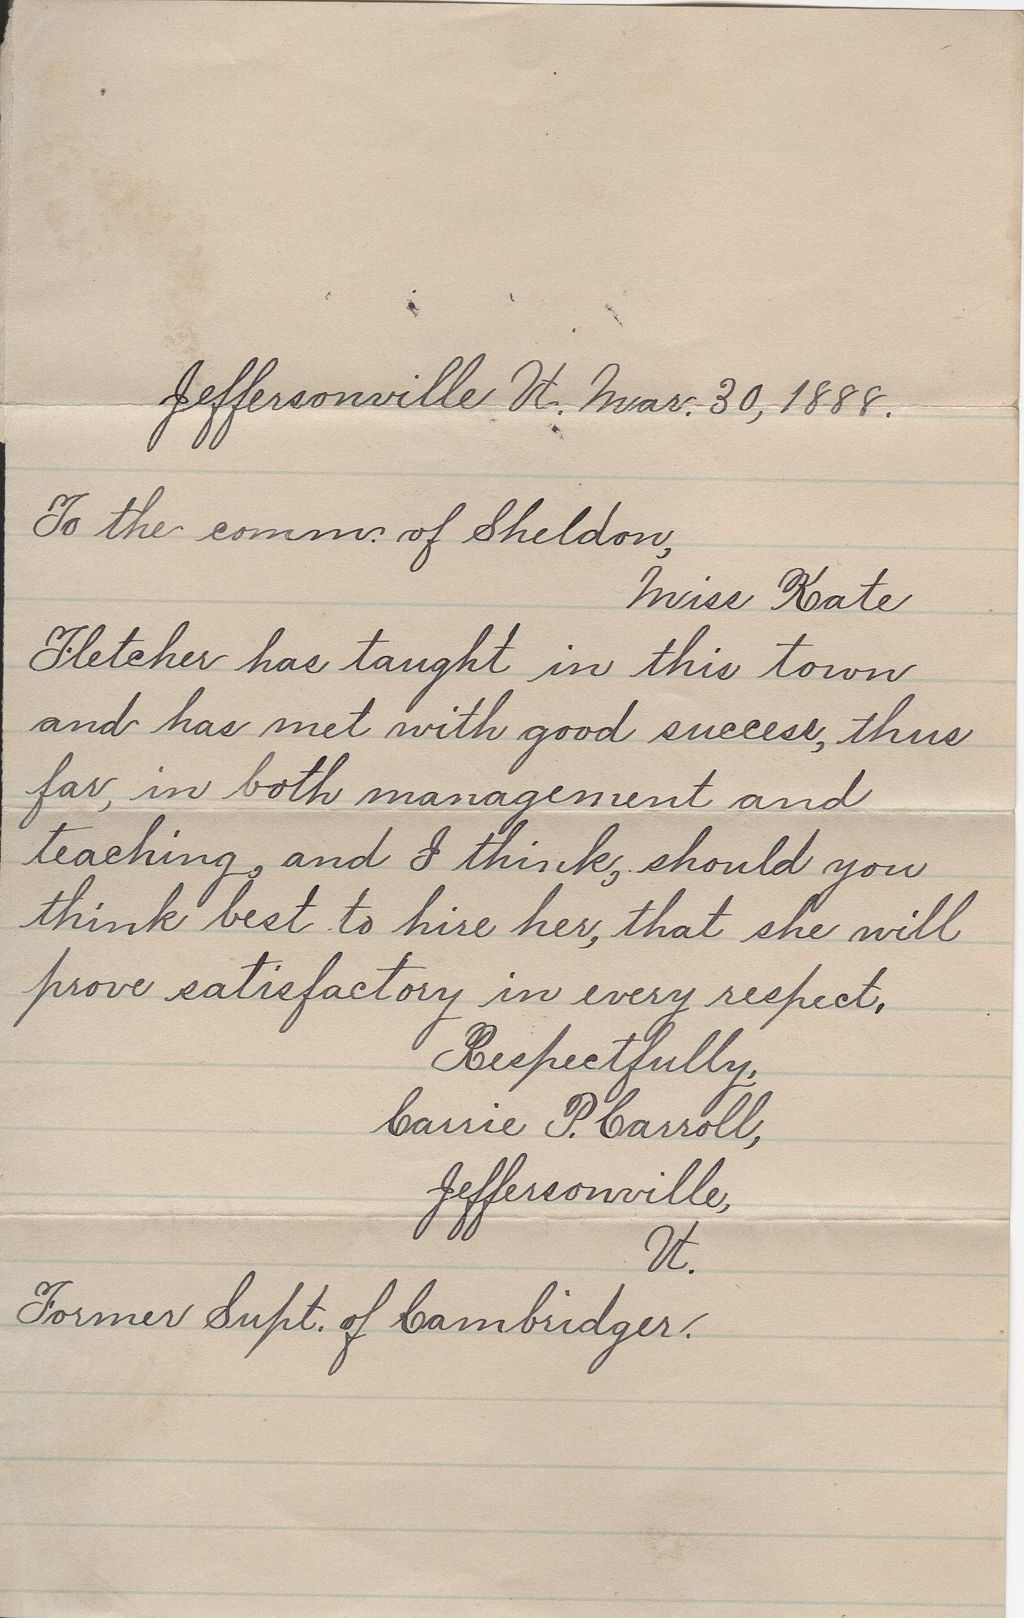 Jeffersonville Vt. Mar. 30, 1888.
To the comm. of Sheldon,
Miss Kate
Fletcher has taught in this town
and has met with good success, thus
far, in both management and
teaching, and I think, should you
think best to hire her, that she will
prove satisfactory in every respect.
Respectfully,
Carrie P. Carroll,
Jeffersonville,
Vt.
Former Supt. of Cambridge.